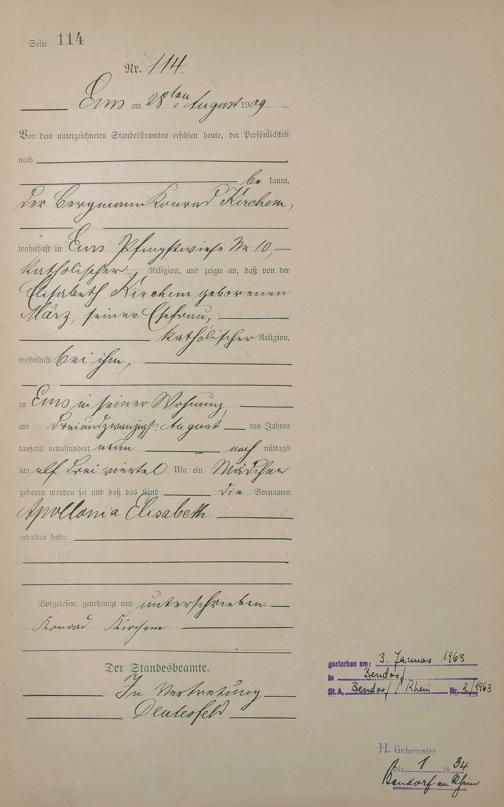 Seite 114
Nr. 114.
Ems am 28ten August 1909.
Vor dem unterzeichneten Standesbeamten erschien heute, der Persönlichkeit
nach
be kannt,
der Bergmann Konrad Kirchem,
wohnhaft in Ems Pfingstwiese Nr. 10,
katholischer Religion, und zeigte an, daß von der
Elisabeth Kirchem geborenen
März, seiner Ehefrau,
katholischer Religion,
wohnhaft bei ihm,
zu Ems in seiner Wohnung,
am dreiundzwanzigsten August des Jahres
tausend neunhundert neun nach mittags
um elf drei viertel Uhr ein Mädchen
geboren worden sei und daß das Kind die Vornamen
Apollonia Elisabeth
erhalten habe
Vorgelesen, genehmigt und unterschrieben
Konrad Kirchem
Der Standesbeamte.
In Vertretung
gestorben am: 3. Januar 1963
in Bendorf
St.A. Bendorf / Rhein Nr. 2/1963
H. Geheiratet
Nr. 1 1934
Bendorf am Rhein